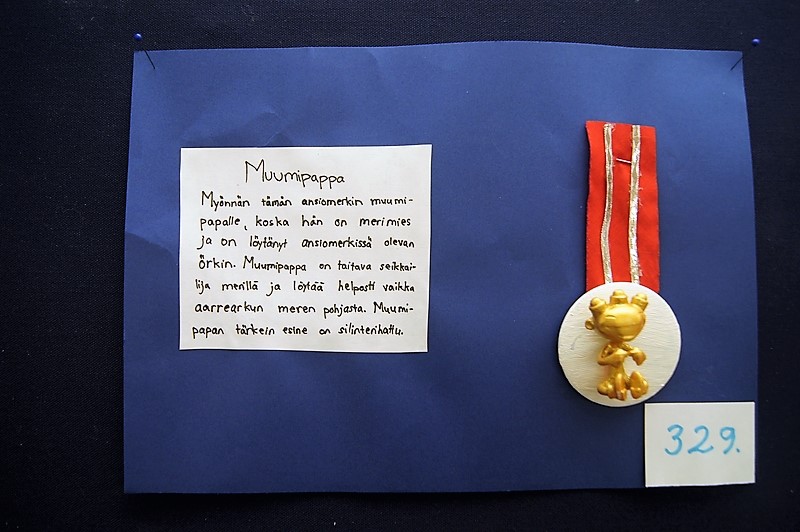 Muumipappa
Myönnän tämän ansiomerkin muumi-
papalle, koska hän on merimies
ja on löytänyt ansiomerkissä olevan
örkin. Muumipappa on taitava seikkai-
lija merillä ja löytää helposti vaikka
aarrearkun meren pohjasta. Muumi-
papan tärkein esine on silinterihattu.
329.